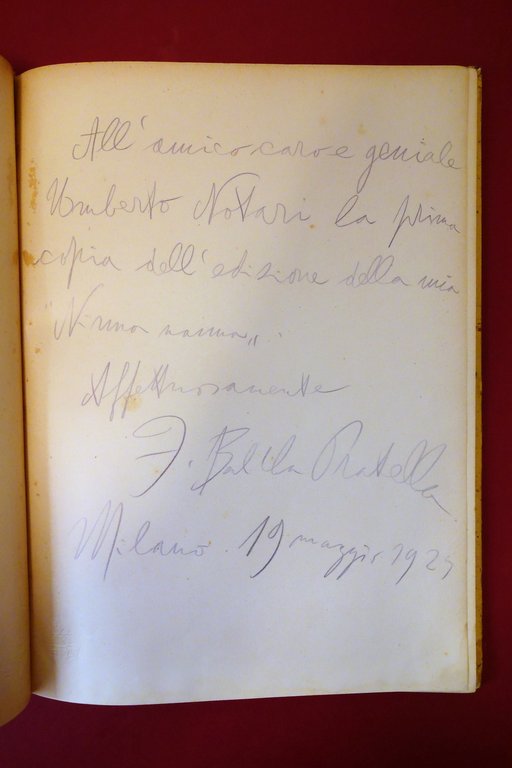 All'amico caro e geniale
Umberto Notari la prima
copia dell'edizione della mia
"Ninna nanna„.
Affettuosamente
F. Balilla Pratella
Milano. 19 maggio